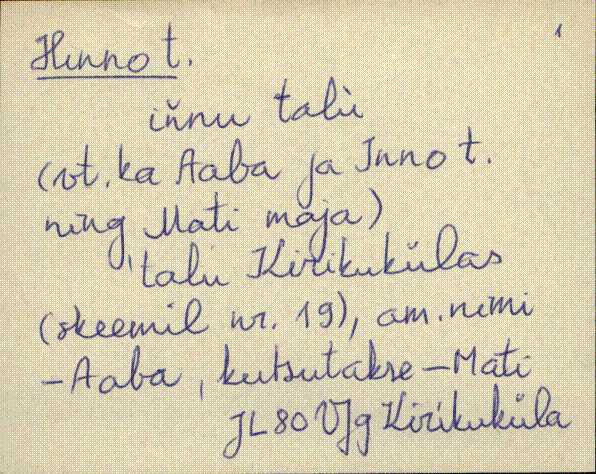 1
Hinno t.
iňnu talù
(vt. ka Aaba ja Inno t.
ning Mati maja)
talu Kirikukülas
(skeemil nr. 19), am. nimi
-Aaba, kutsutakse - Mati
JL 80 VJg Kirikuküla